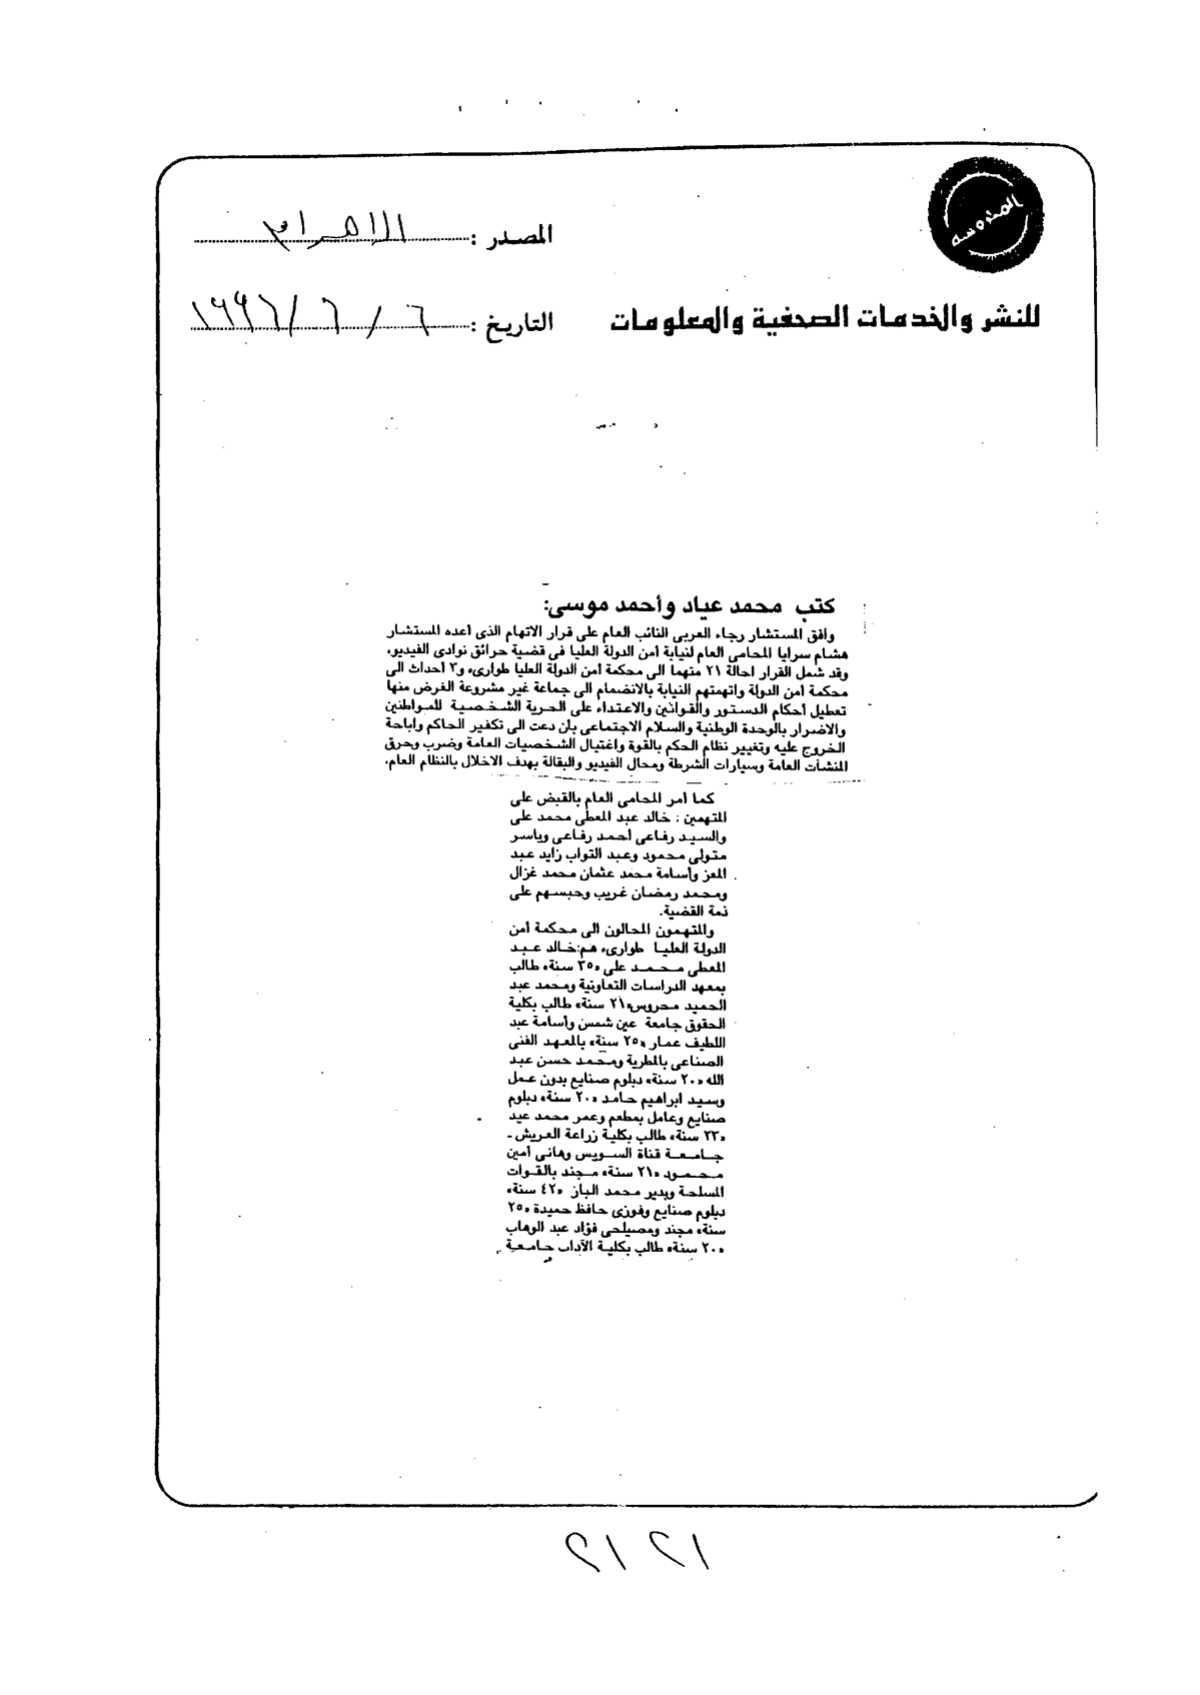 المحروسة
المصدر : الاهرام
للنشر والخدمات الصحفية والمعلومات
التاريخ : ٦ / ٦ / ١٩٩٦
كتب محمد عياد وأحمد موسى:
وافق المستشار رجاء العربى النائب العام على قرار الاتهام الذى أعده المستشار
هشام سرايا المحامى العام لنيابة أمن الدولة العليا فى قضية حرائق نوادى الفيديو،
وقد شمل القرار احالة ٢١ متهما الى محكمة أمن الدولة العليا طوارىء و٣ أحداث الى
محكمة أمن الدولة واتهمتهم النيابة بالانضمام الى جماعة غير مشروعة الغرض منها
تعطيل أحكام الدستور والقوانين والاعتداء على الحرية الشخصية للمواطنين
والاضرار بالوحدة الوطنية والسلام الاجتماعى بأن دعت الى تكفير الحاكم واباحة
الخروج عليه وتغيير نظام الحكم بالقوة واغتيال الشخصيات العامة وضرب وحرق
المنشآت العامة وسيارات الشرطة ومحال الفيديو والبقالة بهدف الاخلال بالنظام العام.
كما أمر المحامى العام بالقبض على
المتهمين : خالد عبد المعطى محمد على
والسيد رفاعى أحمد رفاعى وياسر
متولى محمود وعبد التواب زايد عبد
المعز وأسامة محمد عثمان محمد غزال
ومحمد رمضان غريب وحبسهم على
ذمة القضية.
والمتهمون المحالون الى محكمة أمن
الدولة العليا طوارىء هم:خالد عبد
المعطى محمد على «٣٥ سنة» طالب
بمعهد الدراسات التعاونية ومحمد عبد
الحميد محروس«٢١ سنة» طالب بكلية
الحقوق جامعة عين شمس وأسامة عبد
اللطيف عمار «٢٥ سنة» بالمعهد الفنى
الصناعى بالمطرية ومحمد حسن عبد
الله «٢٠ سنة» دبلوم صنايع بدون عمل
وسيد ابراهيم حامد «٢٠ سنة» دبلوم
صنايع وعامل بمطعم وعمر محمد عيد
«٢٣ سنة» طالب بكلية زراعة العريش ـ
جامعة قناة السويس وهانى أمين
محمود «٢١ سنة» مجند بالقوات
المسلحة وبدير محمد الباز «٤٢ سنة»
دبلوم صنايع وفوزى حافظ حميدة «٢٥
سنة» مجند ومصيلحى فؤاد عبد الوهاب
«٢٠ سنة» طالب بكلية الآداب جامعة